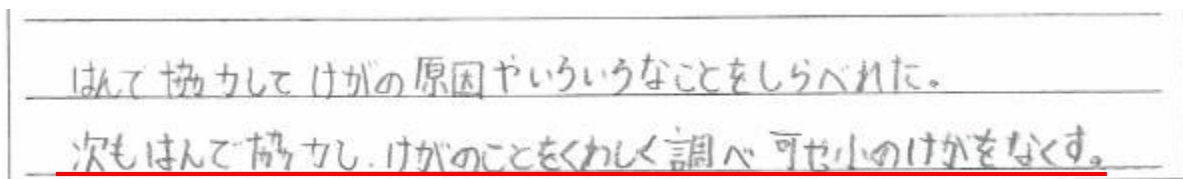 はんで協力してけがの原因やいろいろなことをしらべれた。
次もはんで協力し、けがのことをくわしく調べ のけがをなくす。